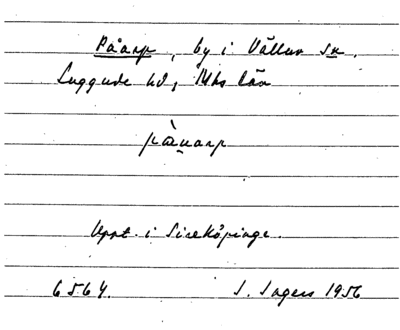 Påarp, by i Välluv sn.
Luggude hd, Mhs län
pàuarp
Uppt. i Sireköpinge.
6564. S. Sagers 1956